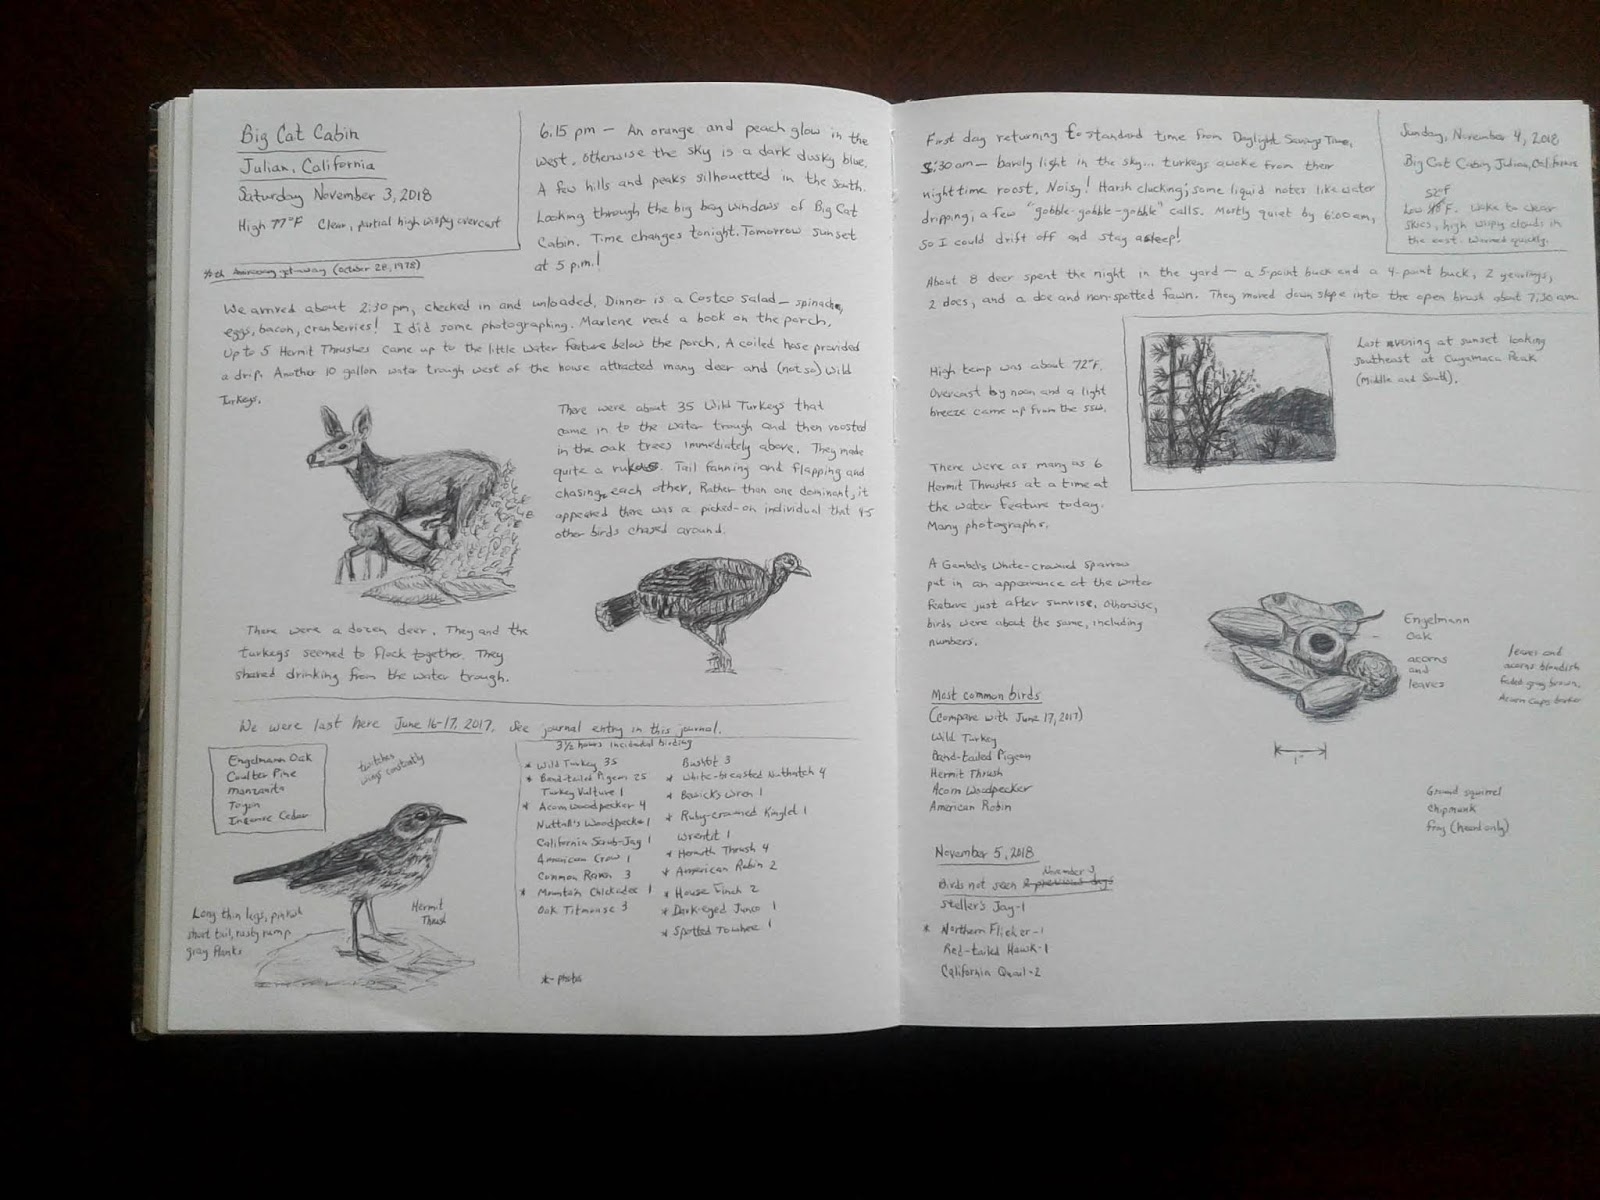 Big Cat Cabin
Julian, California
Saturday November 3, 2018
High 77°F Clear, partial high wispy overcast
40th Anniversary get-away (October 28, 1978)
6:15 pm — An orange and peach glow in the
west. Otherwise the sky is a dark dusky blue.
A few hills and peaks silhouetted in the south.
Looking through the big bay windows of Big Cat
Cabin. Time changes tonight. Tomorrow sunset
at 5 p.m.!
We arrived about 2:30 pm, checked in and unloaded. Dinner is a Costco salad — spinach,
eggs, bacon, cranberries! I did some photographing. Marlene read a book on the porch.
Up to 5 Hermit Thrushes came up to the little water feature below the porch. A coiled hose provided
a drip. Another 10 gallon water trough west of the house attracted many deer and (not so) wild
Turkeys.
There were about 35 Wild Turkeys that
came in to the water trough and then roosted
in the oak trees immediately above. They made
quite a rukus. Tail fanning and flapping and
chasing each other. Rather than one dominant, it
appeared there was a picked-on individual that 4-5
other birds chased around.
There were a dozen deer. They and the
turkeys seemed to flock together. They
shared drinking from the water trough.
We were last here June 16-17, 2017. See journal entry in this journal.
Engelmann Oak
Coulter Pine
manzanita
Toyon
Incense Cedar
twitches
wings constantly
Long thin legs, pinkish
short tail, rusty rump
gray flanks
Hermit
Thrush
3½ hours incidental birding
* Wild Turkey 35
* Band-tailed Pigeon 25
Turkey Vulture 1
* Acorn Woodpecker 4
Nuttall's Woodpecker 1
California Scrub-Jay 1
American Crow 1
Common Raven 3
* Mountain Chickadee 1
Oak Titmouse 3
Bushtit 3
* White-breasted Nuthatch 4
* Bewick's Wren 1
* Ruby-crowned Kinglet 1
Wrentit 1
* Hermit Thrush 4
* American Robin 2
* House Finch 2
* Dark-eyed Junco 1
* Spotted Towhee 1
*- photos
First day returning to standard time from Daylight Savings Time.
5:30 am — barely light in the sky... turkeys awoke from their
night time roost. Noisy! Harsh clucking; some liquid notes like water
dripping; a few "gobble-gobble-gobble" calls. Mostly quiet by 6:00 am,
so I could drift off and stay asleep!
Sunday, November 4, 2018
Big Cat Cabin, Julian, California
52°F
Low F. Woke to clear
skies, high wispy clouds in
the east. Warmed quickly.
About 8 deer spent the night in the yard — a 5-point buck and a 4-point buck, 2 yearlings,
2 does, and a doe and non-spotted fawn. They moved down slope into the open brush about 7:30 am
High temp was about 72°F.
Overcast by noon and a light
breeze came up from the SSW.
Last evening at sunset looking
southeast at Cuyamaca Peak
(Middle and South).
There were as many as 6
Hermit Thrushes at a time at
the water feature today.
Many photographs.
A Gambel's White-crowned Sparrow
put in an appearance at the water
feature just after sunrise. Otherwise,
birds were about the same, including
numbers.
Engelmann
Oak
acorns
and
leaves
leaves and
acorns blondish
faded gray brown.
Acorn caps darker
1"
Most common birds
(Compare with June 17, 2017)
Wild Turkey
Band-tailed Pigeon
Hermit Thrush
Acorn Woodpecker
American Robin
Ground squirrel
chipmunk
frog (heard only)
November 5, 2018
November 3
Birds not seen 2 previous days
Steller's Jay-1
* Northern Flicker-1
Red-tailed Hawk-1
California Quail-2